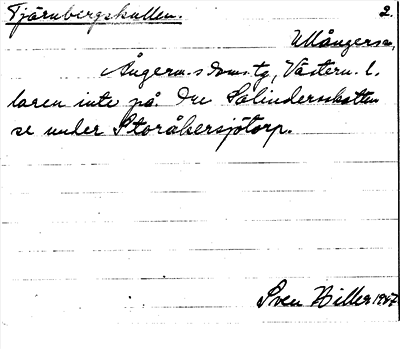 Tjärnbergskullen. 2.
Ullångers sn,
Ångerm. s doms. tg, Västern. l.
laren inte på. Du Salinderskatten
se under Storåbersjötorp.
Sven Hiller 1947